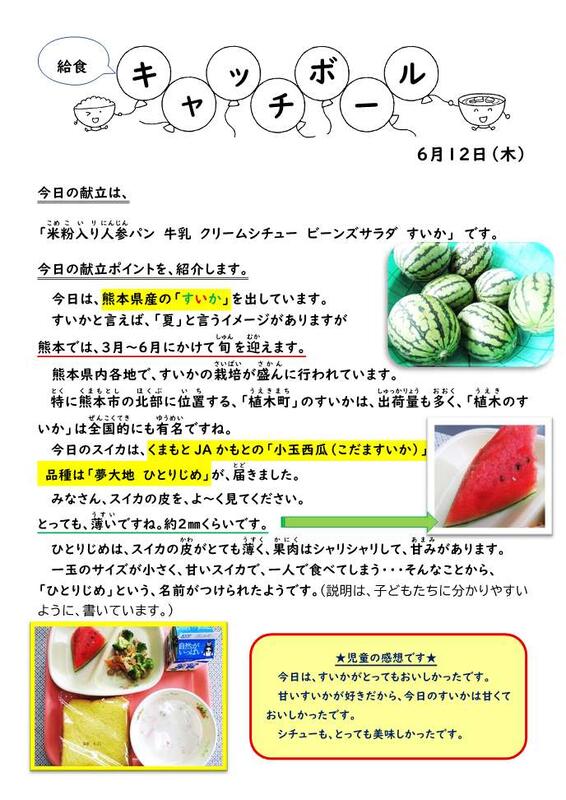 給食
キャッチボール
6月12日(木)
今日の献立は、
「米粉入り人参パン 牛乳 クリームシチュー ビーンズサラダ すいか」 です。
今日の献立ポイントを、紹介します。
今日は、熊本県産の「すいか」を出しています。
すいかと言えば、「夏」と言うイメージがありますが
熊本では、3月~6月にかけて旬を迎えます。
熊本県内各地で、すいかの栽培が盛んに行われています。
特に熊本市の北部に位置する、「植木町」のすいかは、出荷量も多く、「植木のす
いか」は全国的にも有名ですね。
今日のスイカは、くまもとJAかもとの「小玉西瓜(こだますいか)」
品種は「夢大地 ひとりじめ」が、届きました。
みなさん、スイカの皮を、よ~く見てください。
とっても、薄いですね。約2㎜くらいです。
ひとりじめは、スイカの皮がとても薄く、果肉はシャリシャリして、甘みがあります。
一玉のサイズが小さく、甘いスイカで、一人で食べてしまう・・・そんなことから、
「ひとりじめ」という、名前がつけられたようです。(説明は、子どもたちに分かりやすい
ように、書いています。)
自然がいっぱい
★児童の感想です★
今日は、すいかがとってもおいしかったです。
甘いすいかが好きだから、今日のすいかは甘くて
おいしかったです。
シチューも、とっても美味しかったです。